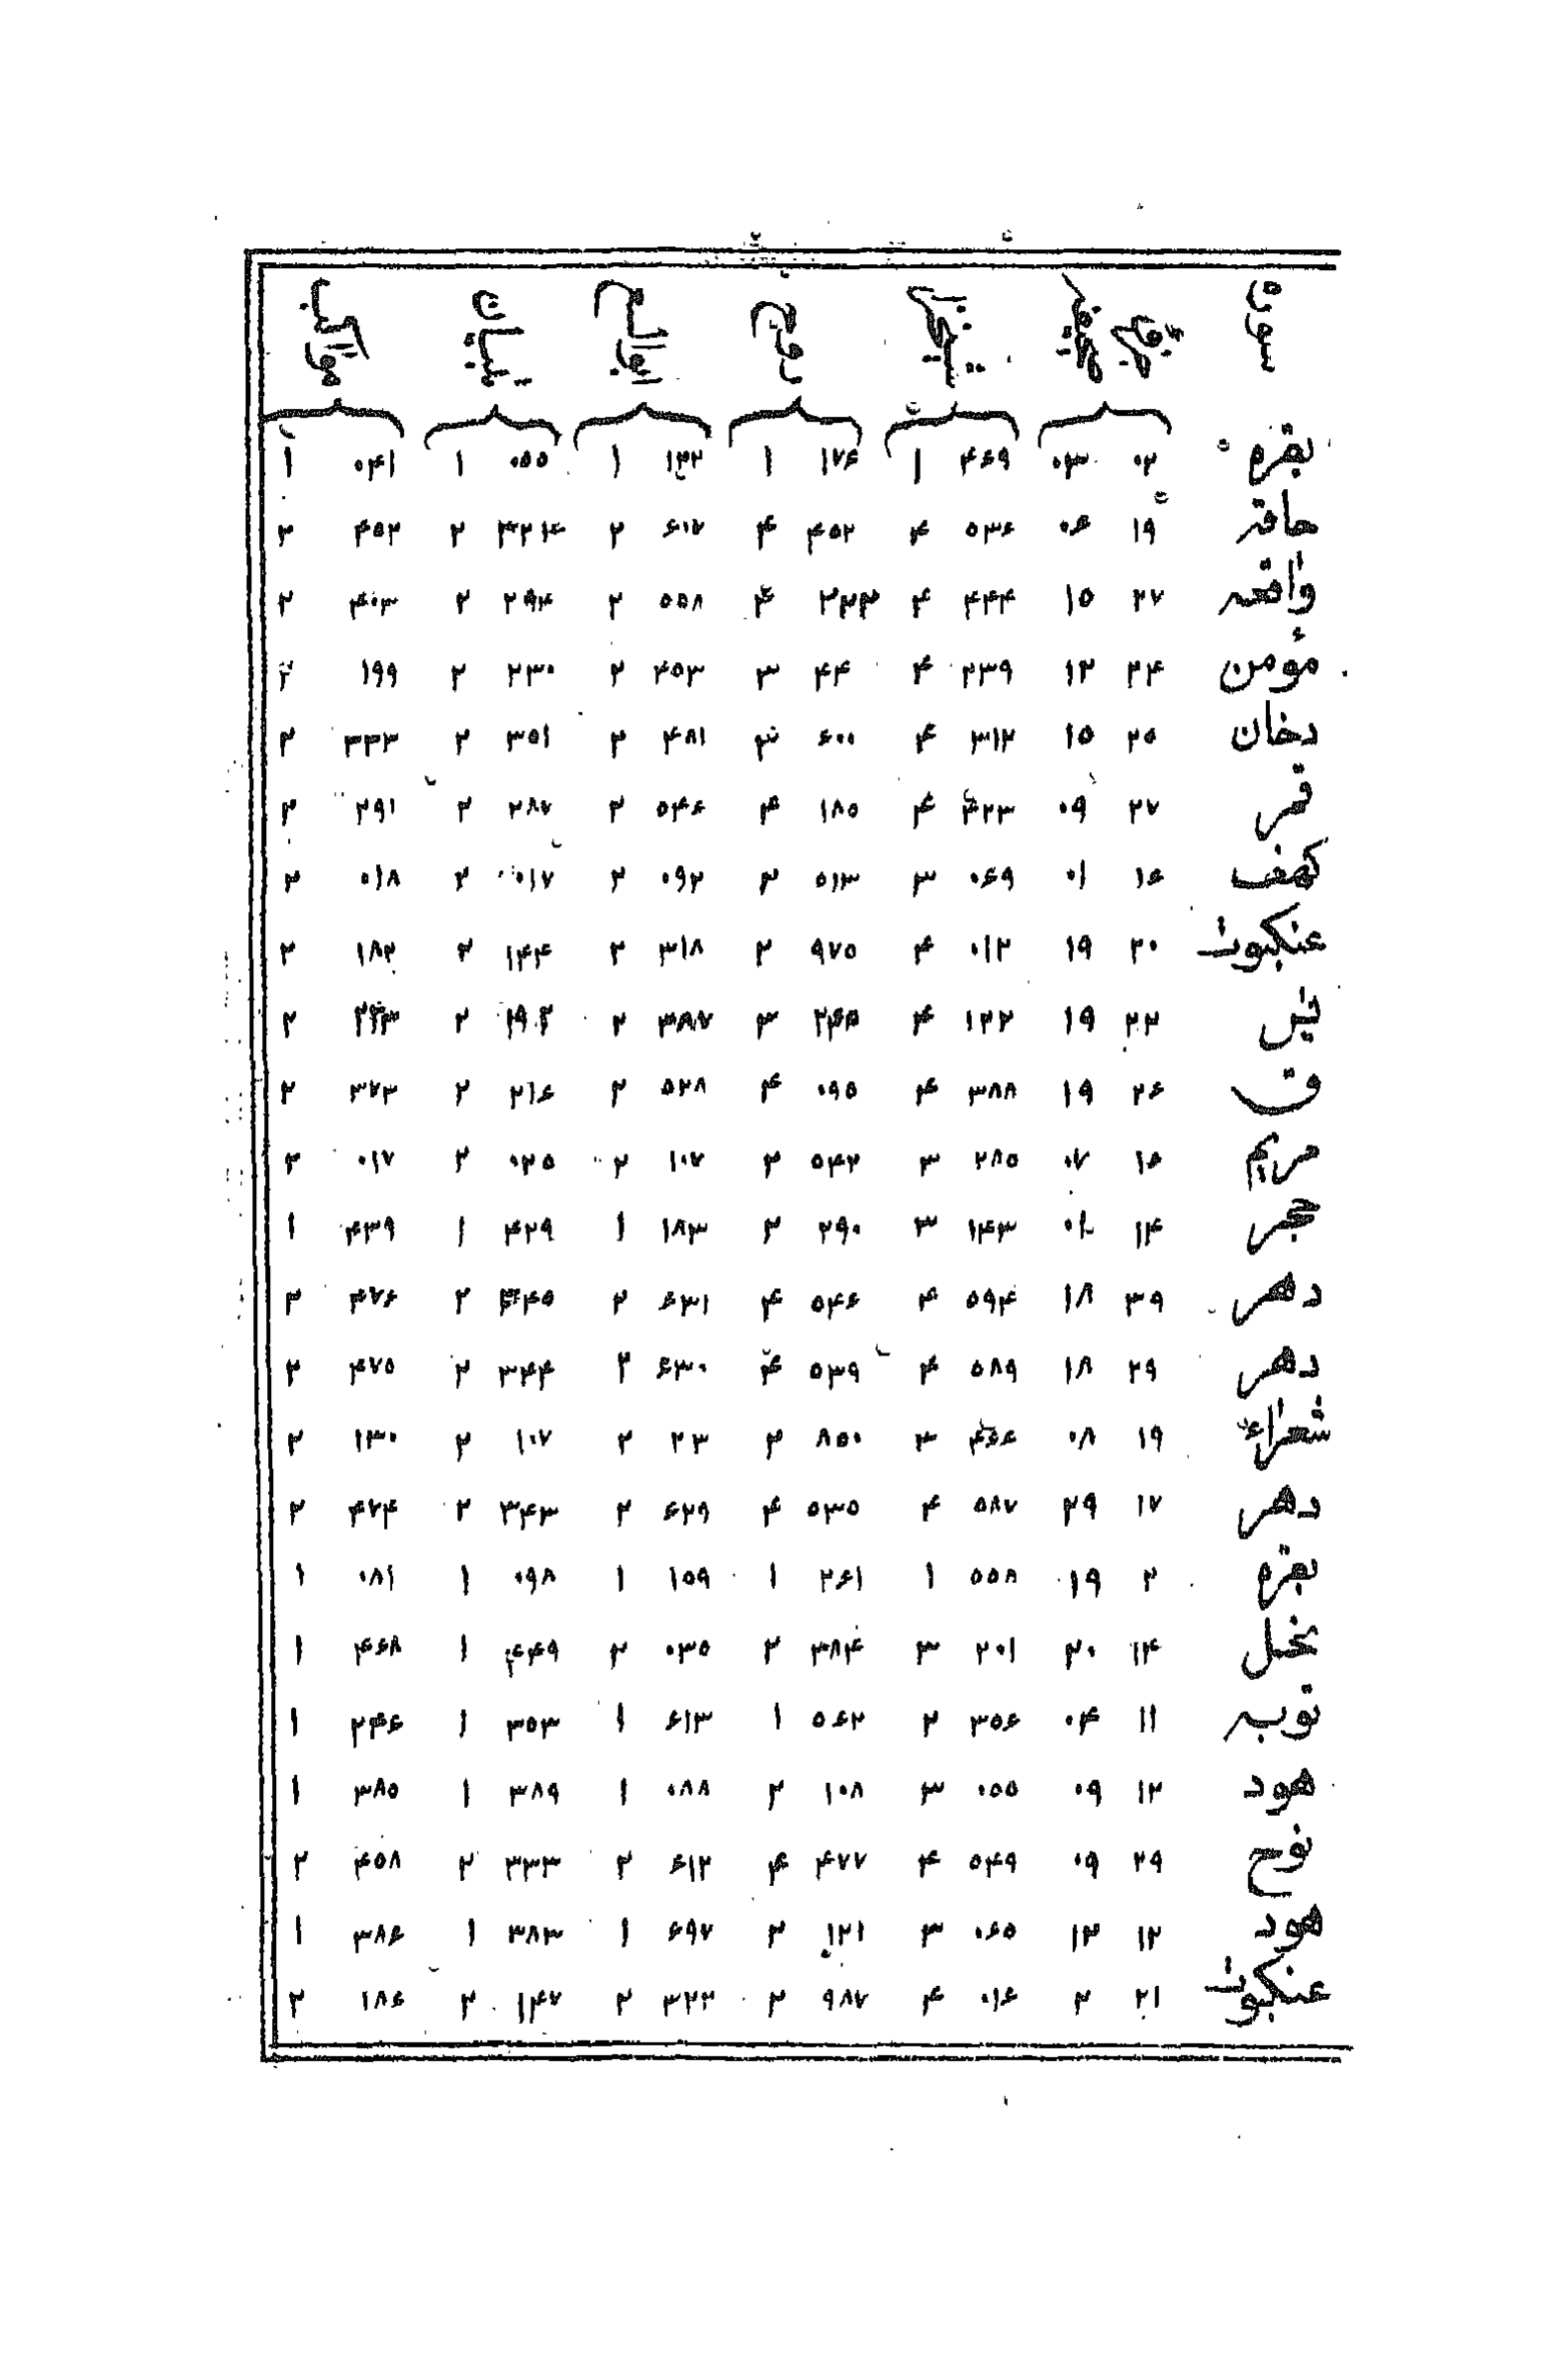 بقره ۰۲ ۰۳ ۴۶۹ ۱ ۱۷۶ ۱ ۱۳۲ ۱ ۰۵۵ ۱ ۰۴۱ ۱
حاقة ۱۹ ۰۶ ۵۳۶ ۴ ۴۵۲ ۴ ۶۱۷ ۲ ۲ ۴۵۲ ۲
واقعه ۲۷ ۱۵ ۴۴۴ ۴ ۲۳۳ ۴ ۵۵۸ ۲ ۲۹۴ ۲ ۴۰۳ ۲
مؤمن ۲۴ ۱۲ ۲۳۹ ۴ ۴۴ ۳ ۴۵۳ ۲ ۲۳۰ ۲ ۱۹۹ ۲
دخان ۲۵ ۱۵ ۳۱۲ ۴ ۶۰۰ ۳ ۴۸۱ ۲ ۳۵۱ ۲ ۳۳۳ ۲
قمر ۲۷ ۰۹ ۴۲۳ ۴ ۱۸۵ ۴ ۵۴۶ ۲ ۲۸۷ ۲ ۲۹۱ ۲
کهف ۱۶ ۰۱ ۰۶۹ ۳ ۵۱۳ ۲ ۰۹۲ ۲ ۰۱۷ ۲ ۰۱۸ ۲
عنکبوت ۲۰ ۱۹ ۰۱۲ ۴ ۹۷۵ ۲ ۳۱۸ ۲ ۱۴۴ ۲ ۱۸۲ ۲
یس ۲۲ ۱۹ ۱۲۲ ۴ ۳ ۳۸۷ ۲ ۱۹۲ ۲ ۲۳۳ ۲
ق ۲۶ ۱۹ ۳۸۸ ۴ ۰۹۵ ۴ ۵۲۸ ۲ ۲۱۶ ۲ ۳۷۳ ۲
مریم ۱۶ ۰۷ ۲۸۵ ۳ ۵۴۲ ۲ ۱۰۷ ۲ ۰۲۵ ۲ ۰۱۷ ۲
حجر ۱۴ ۰۱ ۱۴۳ ۳ ۲۹۰ ۲ ۱۸۳ ۱ ۴۲۹ ۱ ۴۳۹ ۱
دهر ۳۹ ۱۸ ۵۹۴ ۴ ۵۴۶ ۴ ۶۳۱ ۲ ۳۴۵ ۲ ۴۷۶ ۲
دهر ۲۹ ۱۸ ۵۸۹ ۴ ۵۳۹ ۴ ۶۳۰ ۲ ۳۴۴ ۲ ۴۷۵ ۲
شعراء ۱۹ ۰۸ ۴۶۶ ۳ ۸۵۰ ۲ ۲۳ ۲ ۱۰۷ ۲ ۱۳۰ ۲
دهر ۱۷ ۲۹ ۵۸۷ ۴ ۵۳۵ ۴ ۶۲۹ ۲ ۳۴۳ ۲ ۴۷۴ ۲
بقره ۲ ۱۹ ۵۵۸ ۱ ۲۶۱ ۱ ۱۵۹ ۱ ۰۹۸ ۱ ۰۸۱ ۱
نحل ۱۴ ۲۰ ۲۰۱ ۳ ۳۸۴ ۲ ۰۳۵ ۲ ۴۴۹ ۱ ۴۶۸ ۱
توبه ۱۱ ۰۴ ۳۵۶ ۲ ۵۶۲ ۱ ۶۱۳ ۱ ۳۵۳ ۱ ۲۴۶ ۱
هود ۱۲ ۰۹ ۰۵۵ ۳ ۱۰۸ ۲ ۰۸۸ ۱ ۳۸۹ ۱ ۳۸۵ ۱
نوح ۲۹ ۰۹ ۵۴۹ ۴ ۴۷۷ ۴ ۶۱۲ ۲ ۳۳۳ ۲ ۴۵۸ ۲
هود ۱۲ ۱۲ ۰۶۵ ۳ ۱۲۱ ۲ ۶۹۷ ۱ ۳۸۳ ۱ ۳۸۶ ۱
عنکبوت ۲۱ ۲ ۰۱۶ ۴ ۹۸۷ ۲ ۳۲۳ ۲ ۱۴۷ ۲ ۱۸۶ ۲